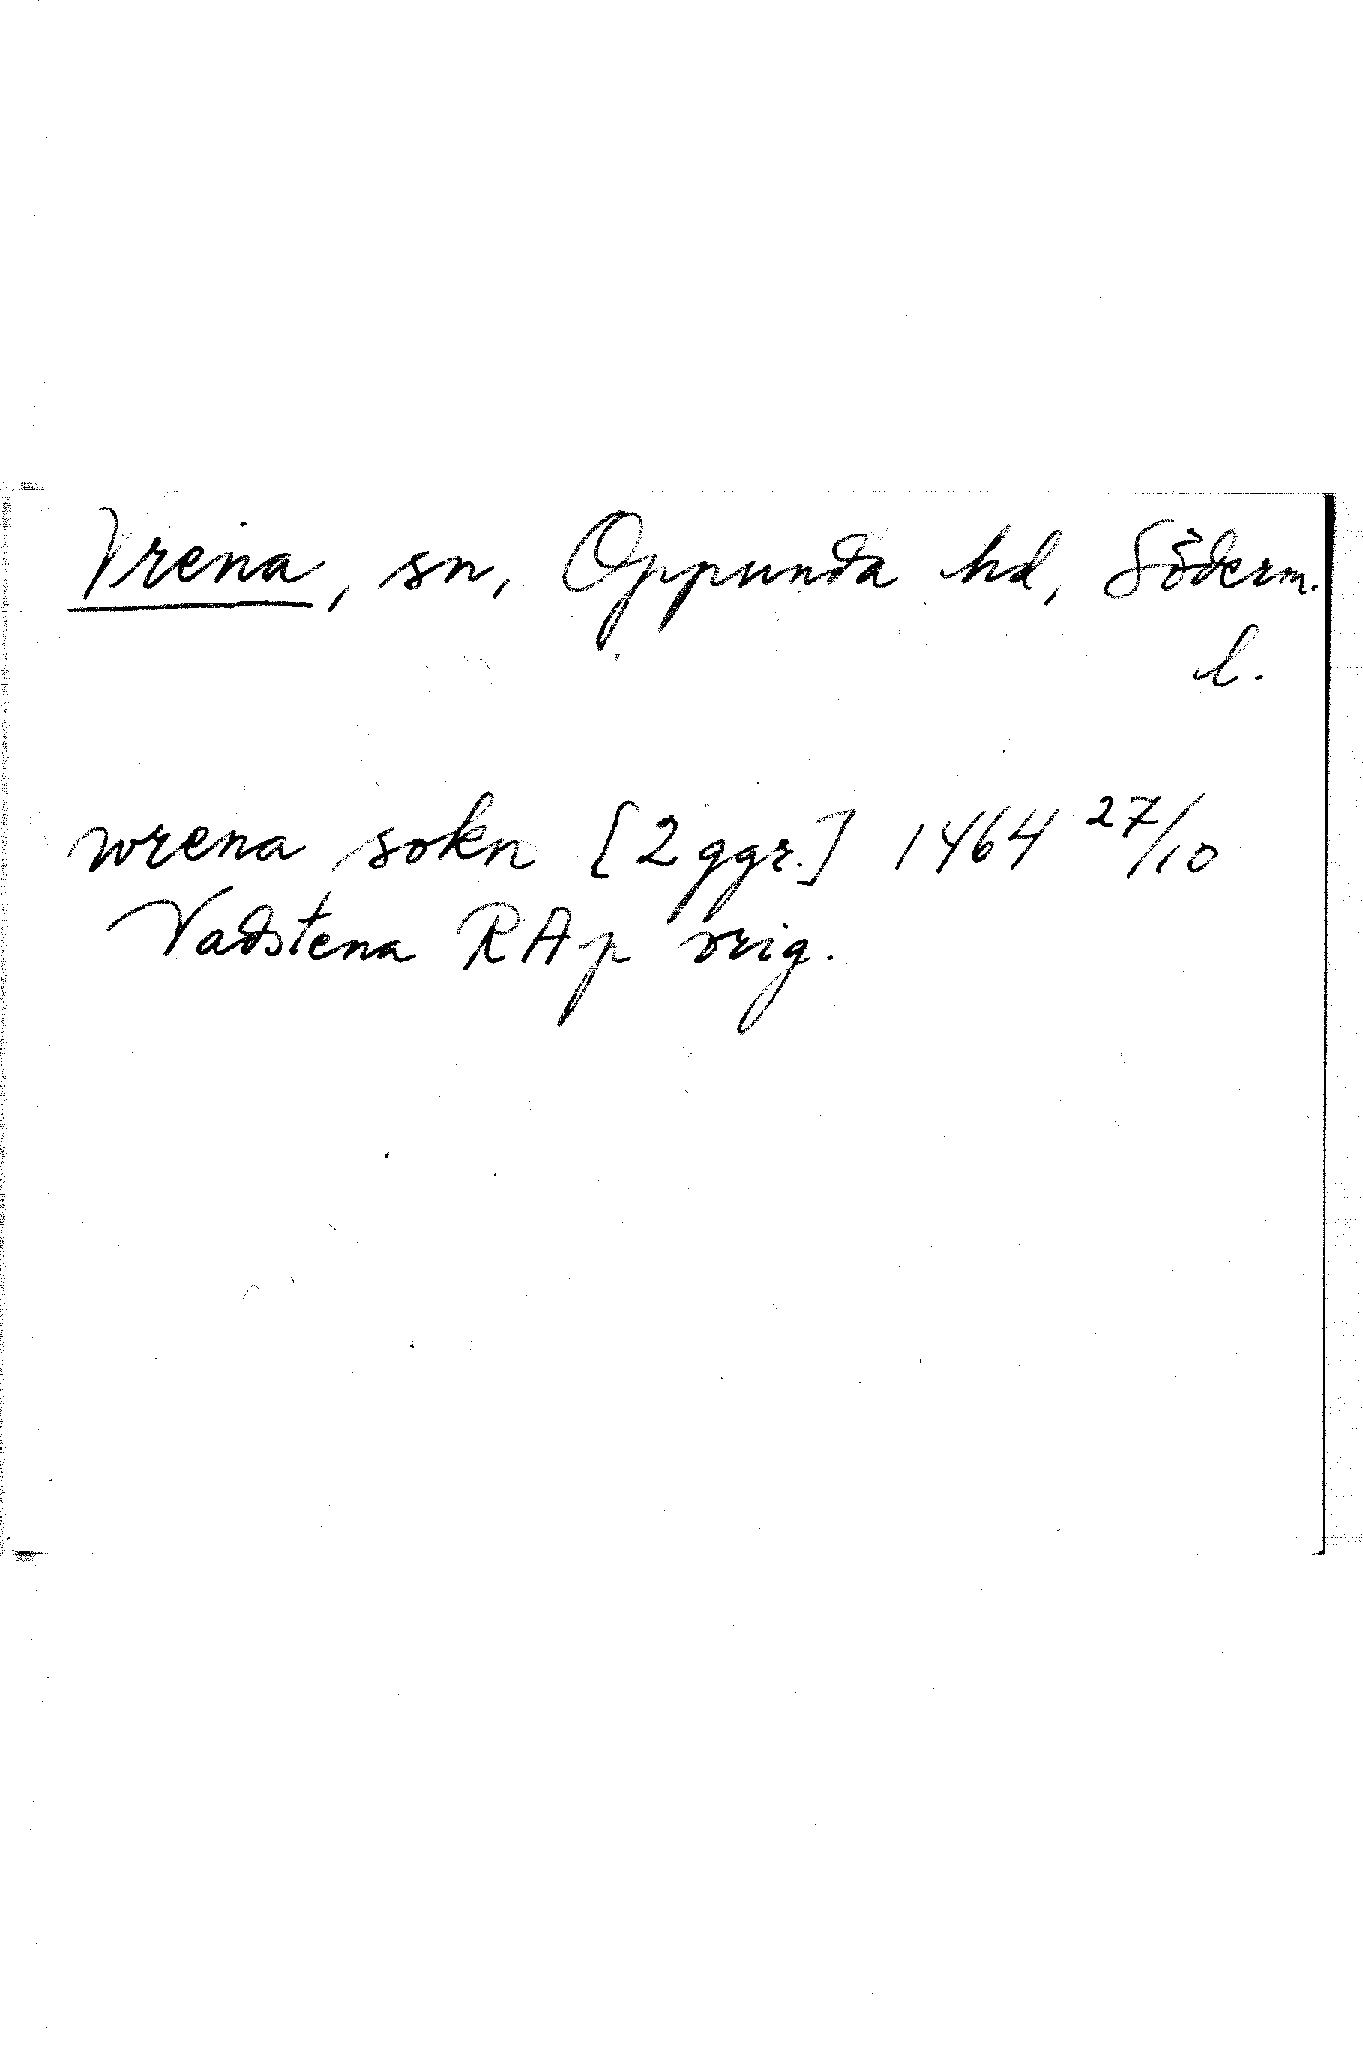 Vrena, sn, Oppunda hd, Söderm.
l.
wrena sokn [2 ggr.] 1464 27/10
Vadstena RAp orig.